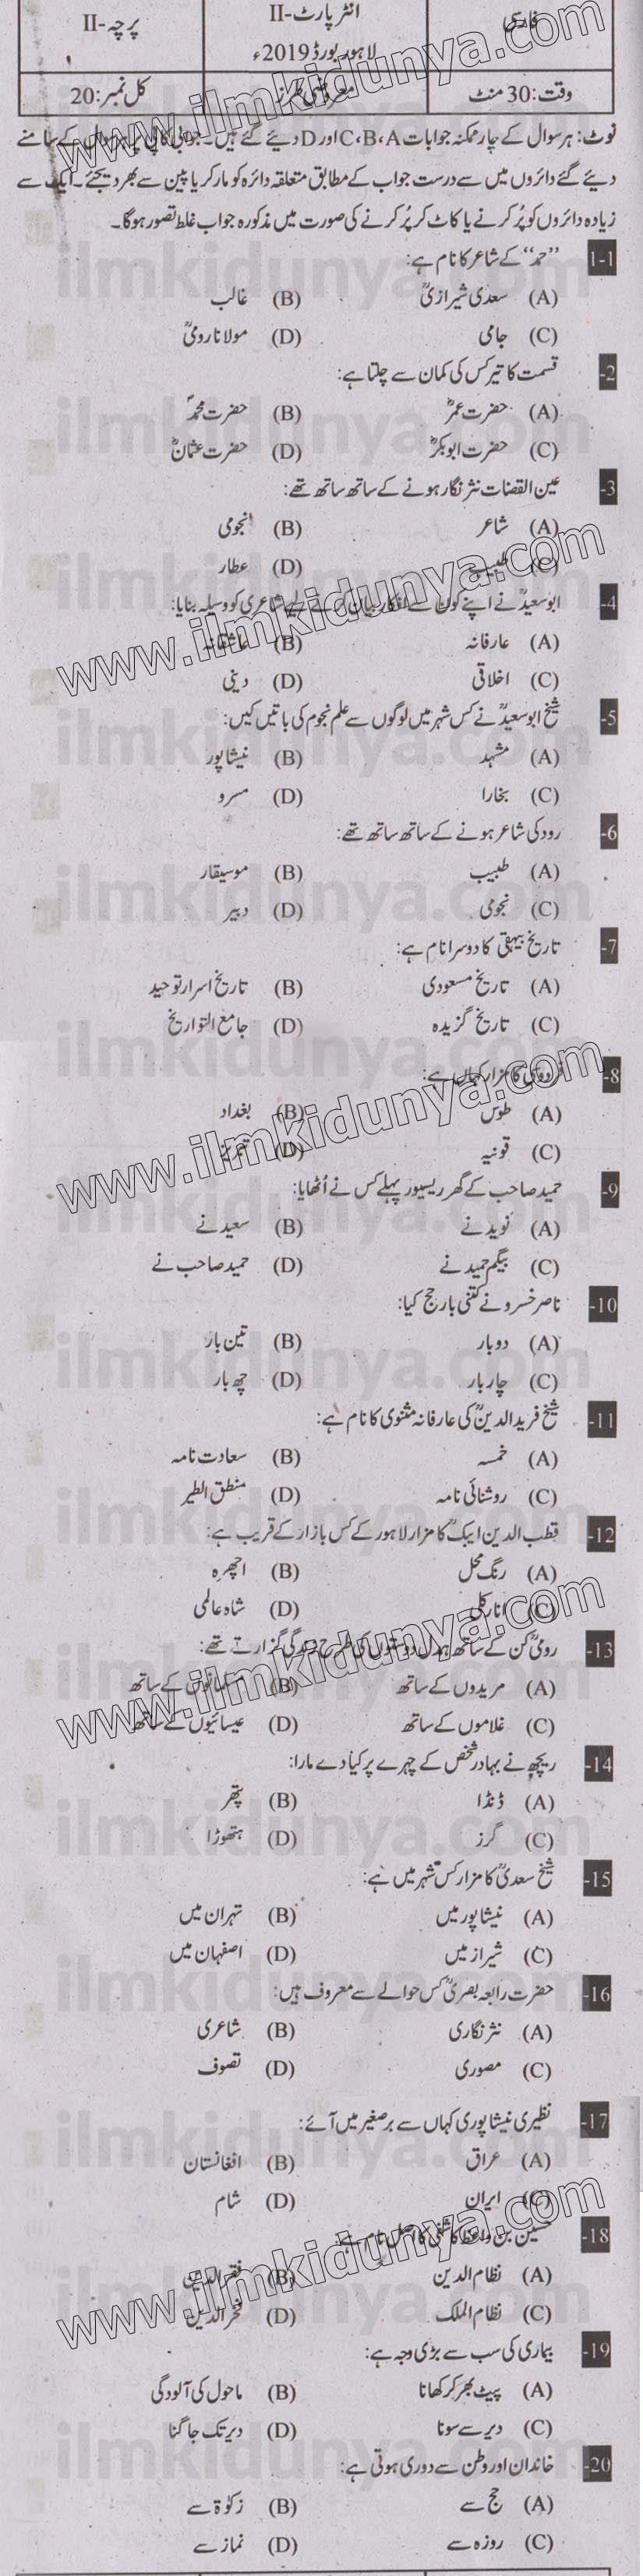 فارسی
انٹر پارٹ-II
پرچہ-II
لاہور بورڈ 2019ء
وقت: 30 منٹ
معروضی طرز
کل نمبر: 20
نوٹ: ہر سوال کے چار ممکنہ جوابات C،B،A اور D دیئے گئے ہیں۔ جوابی کاپی پر ہر سوال کے سامنے
دیئے گئے دائروں میں سے درست جواب کے مطابق متعلقہ دائرہ کو مارکر یا پین سے بھر دیجئے۔ ایک سے
زیادہ دائروں کو پُر کرنے یا کاٹ کر پُر کرنے کی صورت میں مذکورہ جواب غلط تصور ہوگا۔
1-1 ”حمد“ کے شاعر کا نام ہے:
(A) سعدی شیرازیؒ (B) غالب
(C) جامی (D) مولانا رومیؒ
-2 قسمت کا تیر کس کی کمان سے چلتا ہے:
(A) حضرت عمرؓ (B) حضرت محمدؐ
(C) حضرت ابوبکرؓ (D) حضرت عثمانؓ
-3 عین القضات نثر نگار ہونے کے ساتھ ساتھ تھے:
(A) شاعر (B) نجومی
(C) طبیب (D) عطار
-4 ابوسعیدؒ نے اپنے کون سے افکار بیان کرنے کے لیے شاعری کو وسیلہ بنایا:
(A) عارفانہ (B) عاشقانہ
(C) اخلاقی (D) دینی
-5 شیخ ابوسعیدؒ نے کس شہر میں لوگوں سے علم نجوم کی باتیں کیں:
(A) مشہد (B) نیشاپور
(C) بخارا (D) مرو
-6 رودکی شاعر ہونے کے ساتھ ساتھ تھے:
(A) طبیب (B) موسیقار
(C) نجومی (D) دبیر
-7 تاریخ بیہقی کا دوسرا نام ہے:
(A) تاریخ مسعودی (B) تاریخ اسرار توحید
(C) تاریخ گزیدہ (D) جامع التواریخ
-8 فردوسی کا مزار کہاں ہے:
(A) طوس (B) بغداد
(C) قونیہ (D) تبریز
-9 حمید صاحب کے گھر ریسیور پہلے کس نے اُٹھایا:
(A) نوید نے (B) سعید نے
(C) بیگم حمید نے (D) حمید صاحب نے
-10 ناصر خسرو نے کتنی بار حج کیا:
(A) دو بار (B) تین بار
(C) چار بار (D) چھ بار
-11 شیخ فرید الدینؒ کی عارفانہ مثنوی کا نام ہے:
(A) خمسہ (B) سعادت نامہ
(C) روشنائی نامہ (D) منطق الطیر
-12 قطب الدین ایبکؒ کا مزار لاہور کے کس بازار کے قریب ہے:
(A) رنگ محل (B) اچھرہ
(C) انار کلی (D) شاہ عالمی
-13 رومیؒ کن کے ساتھ ہمدل دوستوں کی طرح زندگی گزارتے تھے:
(A) مریدوں کے ساتھ (B) مسلمانوں کے ساتھ
(C) غلاموں کے ساتھ (D) عیسائیوں کے ساتھ
-14 ریچھ نے بہادر شخص کے چہرے پر کیا دے مارا:
(A) ڈنڈا (B) پتھر
(C) گرز (D) ہتھوڑا
-15 شیخ سعدیؒ کا مزار کس شہر میں ہے:
(A) نیشاپور میں (B) تہران میں
(C) شیراز میں (D) اصفہان میں
-16 حضرت رابعہ بصریؒ کس حوالے سے معروف ہیں:
(A) نثر نگاری (B) شاعری
(C) مصوری (D) تصوف
-17 نظیری نیشاپوری کہاں سے برصغیر میں آئے:
(A) عراق (B) افغانستان
(C) ایران (D) شام
-18 حسین بن واعظ کاشفی کا اصل نام ہے:
(A) نظام الدین (B)
(C) نظام الملک (D) فخر الدین
-19 بیماری کی سب سے بڑی وجہ ہے:
(A) پیٹ بھر کر کھانا (B) ماحول کی آلودگی
(C) دیر سے سونا (D) دیر تک جاگنا
-20 خاندان اور وطن سے دوری ہوتی ہے:
(A) حج سے (B) زکوٰۃ سے
(C) روزہ سے (D) نماز سے
www.ilmkidunya.com
ilmkidunya.com